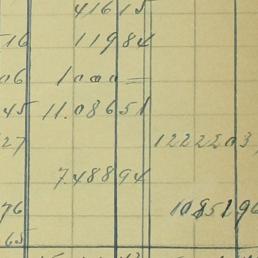 416 15
516 119 84
06 1000 =
45 11.086 51
27 12222 03
7.488 94
76 10851 96
65